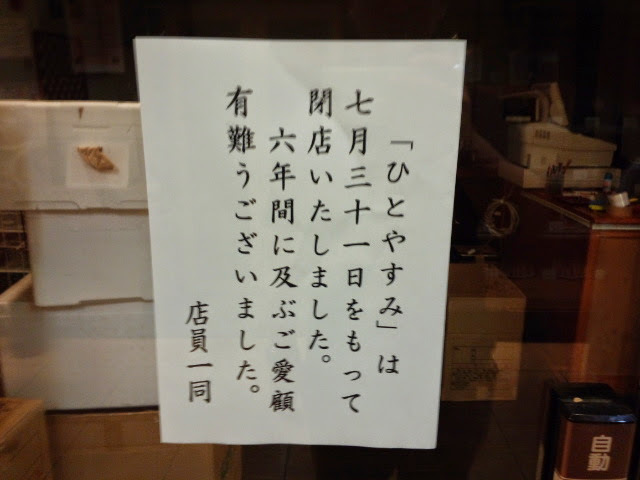 「ひとやすみ」は
七月三十一日をもって
閉店いたしました。
六年間に及ぶご愛顧
有難うございました。
店員一同
自動